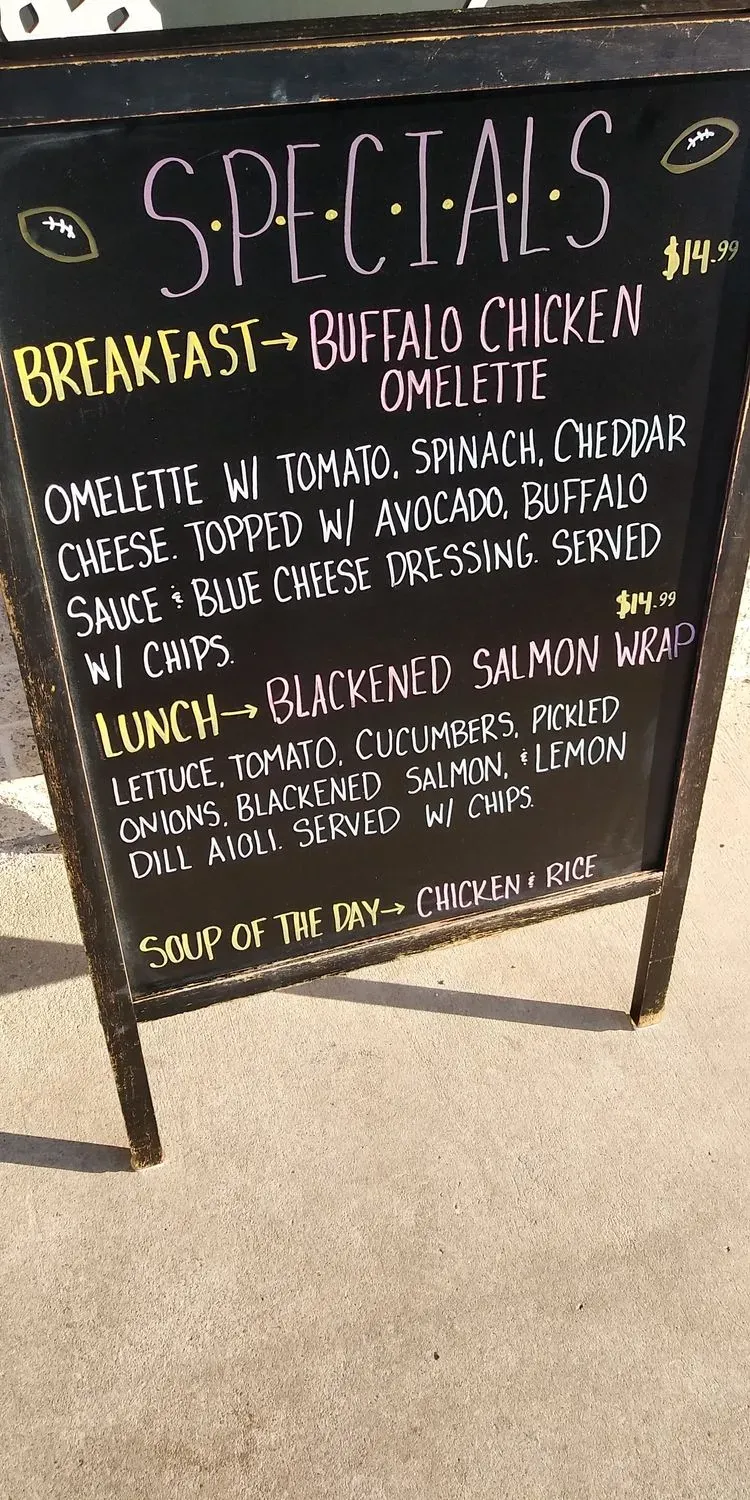 S·P·E·C·I·A·L·S
$14.99
BREAKFAST→ BUFFALO CHICKEN
OMELETTE
OMELETTE W/ TOMATO, SPINACH, CHEDDAR
CHEESE. TOPPED W/ AVOCADO, BUFFALO
SAUCE & BLUE CHEESE DRESSING. SERVED
W/ CHIPS.
$14.99
LUNCH→ BLACKENED SALMON WRAP
LETTUCE, TOMATO, CUCUMBERS, PICKLED
ONIONS, BLACKENED SALMON, & LEMON
DILL AIOLI. SERVED W/ CHIPS.
SOUP OF THE DAY→ CHICKEN & RICE